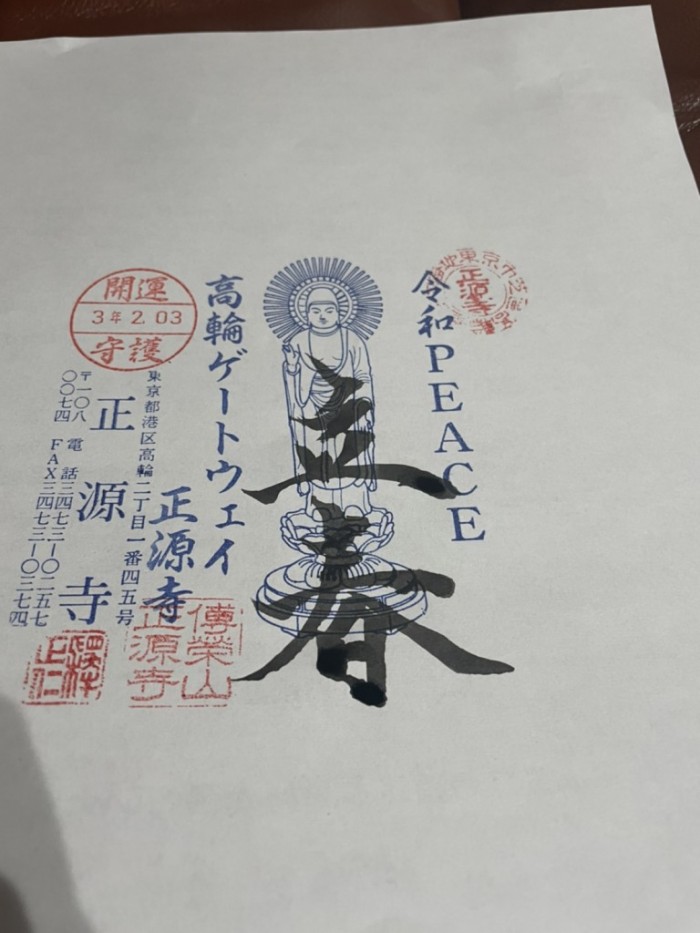 令和PEACE
正源寺
立春
高輪ゲートウェイ
正源寺
傳榮山
正源寺
開運
3年2.03
守護
東京都港区高輪二丁目一番四五号
正源寺
電話三四七三－〇二五七
FAX三四七三－〇三七四
〒一〇八
〇〇七四